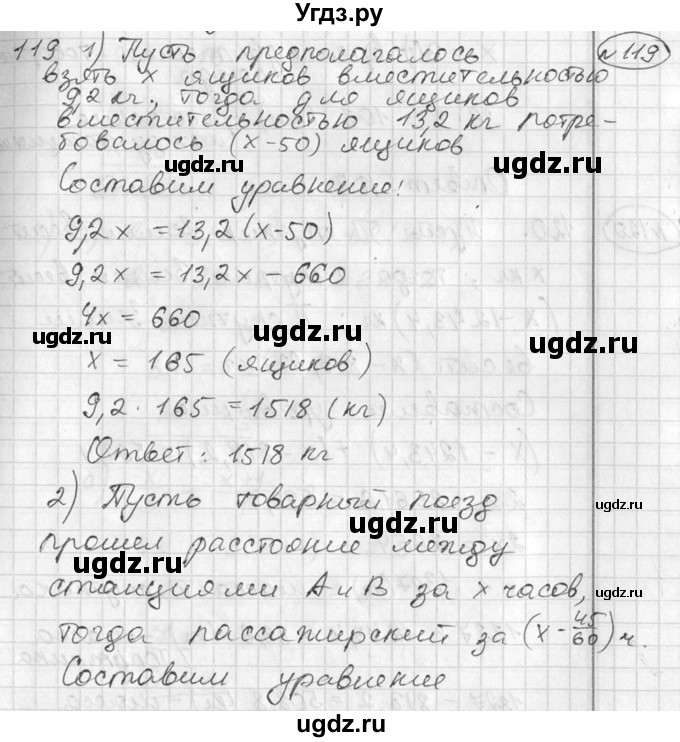 Угдз.ру
119 1) Пусть предполагалось
№119
взять x ящиков вместительностью
9,2 кг, тогда для ящиков
вместительностью 13,2 кг потре-
бовалось (x-50) ящиков
Составим уравнение:
9,2x = 13,2(x-50)
9,2x = 13,2x - 660
4x = 660
x = 165 (ящиков)
9,2 · 165 = 1518 (кг)
Ответ: 1518 кг
2) Пусть товарный поезд
прошел расстояние между
станциями А и В за x часов,
тогда пассажирский за (x - 45/60) ч.
Составим уравнение
ugdz.ru
ugdz.ru
ugdz.ru
ugdz.ru
ugdz.ru
ugdz.ru
ugdz.ru
ugdz.ru
ugdz.ru
ugdz.ru